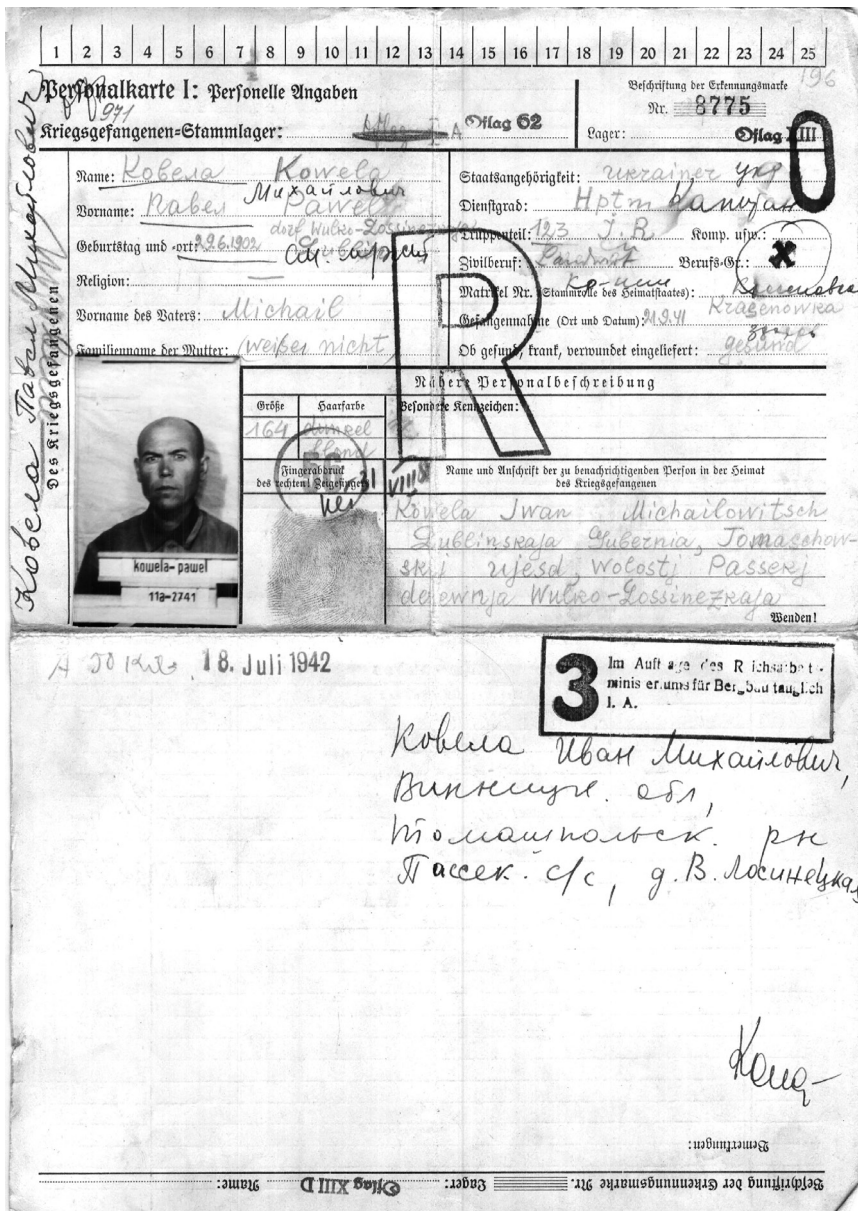 1 2 3 4 5 6 7 8 9 10 11 12 13 14 15 16 17 18 19 20 21 22 23 24 25
196
Personalkarte I: Personelle Angaben
Beschriftung der Erkennungsmarke
971
Nr. 8775
Kriegsgefangenen-Stammlager: Oflag 62
Lager: Oflag XIII
Ковела Павел Михайлович
Des Kriegsgefangenen
Name: Ковела Kowela
Михайлович
Vorname: Pawel
dorf Wulko-Lossinez
Geburtstag und -ort: 29.6.1902
Religion: —
Vorname des Vaters: Michail
Familienname der Mutter: weißer nicht
Staatsangehörigkeit: Ukrainer укр
Dienstgrad: Hptm Капитан
Truppenteil: 123 J.R. Komp. usw.:
Zivilberuf: Landwirt Berufs-Gr.: x
Matrikel Nr. (Stammrolle des Heimatstaates):
Gefangennahme (Ort und Datum): 21.9.41 Krasenowka
Ob gesund, krank, verwundet eingeliefert: gesund
R
Nähere Personalbeschreibung
Größe Haarfarbe Besondere Kennzeichen:
164 dunkel
blond
Fingerabdruck
des rechten! Zeigefingers
Name und Anschrift der zu benachrichtigenden Person in der Heimat
des Kriegsgefangenen
Kowela Iwan Michailowitsch
Lublinskaja Gubernia, Tomaschow-
skij ujesd, wolostj Passekj
derewnja Wulko-Lossinezkaja
kowela-pawel
11a-2741
Wenden!
18. Juli 1942
3 Im Auftrage des Reichsarbeits-
ministeriums für Bergbau tauglich
I. A.
Ковела Иван Михайлович,
Винницк. обл,
Томашпольск. рн
Пассек. с/с, д. В. Лосинецкая
Bemerkungen:
Beschriftung der Erkennungsmarke Nr. Lager: Oflag XIII D Name: